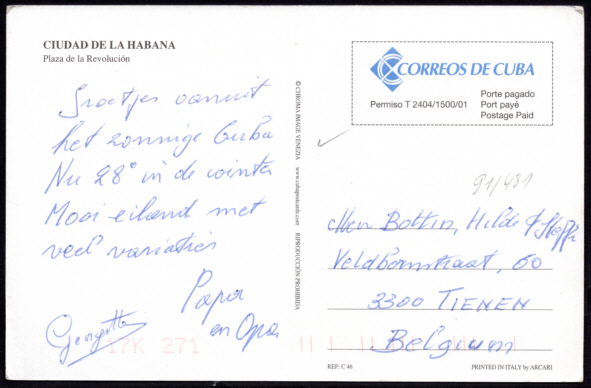 CIUDAD DE LA HABANA
Plaza de la Revolución
Groetjes vanuit
het zonnige Cuba
Nu 28° in de winter
Mooi eiland met
veel variaties
Papa
en Opa
Georgette
© CHROMA IMAGE VENEZIA
www.cubapostcards.com
REPRODUCCIÓN PROHIBIDA
CORREOS DE CUBA
Permiso T 2404/1500/01
Porte pagado
Port payé
Postage Paid
91/481
Bottin, Hilde &
50
3300 TIENEN
Belgium
17K 271
REF: C 46
PRINTED IN ITALY by ARCARI